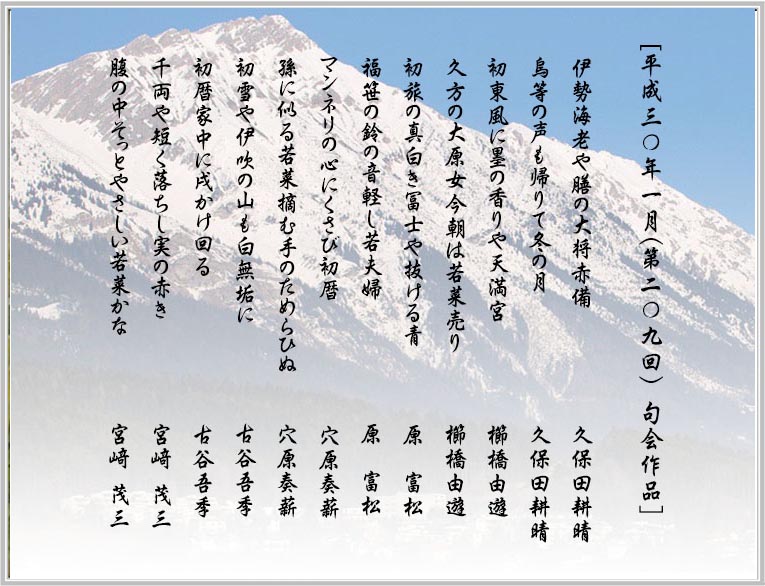 ［平成三〇年一月（第二〇九回）句会作品］
伊勢海老や膳の大将赤備　久保田耕晴
鳥等の声も帰りて冬の月　久保田耕晴
初東風に墨の香りや天満宮　櫛橋由遊
久方の大原女今朝は若菜売り　櫛橋由遊
初旅の真白き冨士や抜ける青　原　富松
福笹の鈴の音軽し若夫婦　原　富松
マンネリの心にくさび初暦　穴原奏薪
孫に似る若菜摘む手のためらひぬ　穴原奏薪
初雪や伊吹の山も白無垢に　古谷吾季
初暦家中に戌かけ回る　古谷吾季
千両や短く落ちし実の赤き　宮﨑　茂三
腹の中そっとやさしい若菜かな　宮﨑　茂三